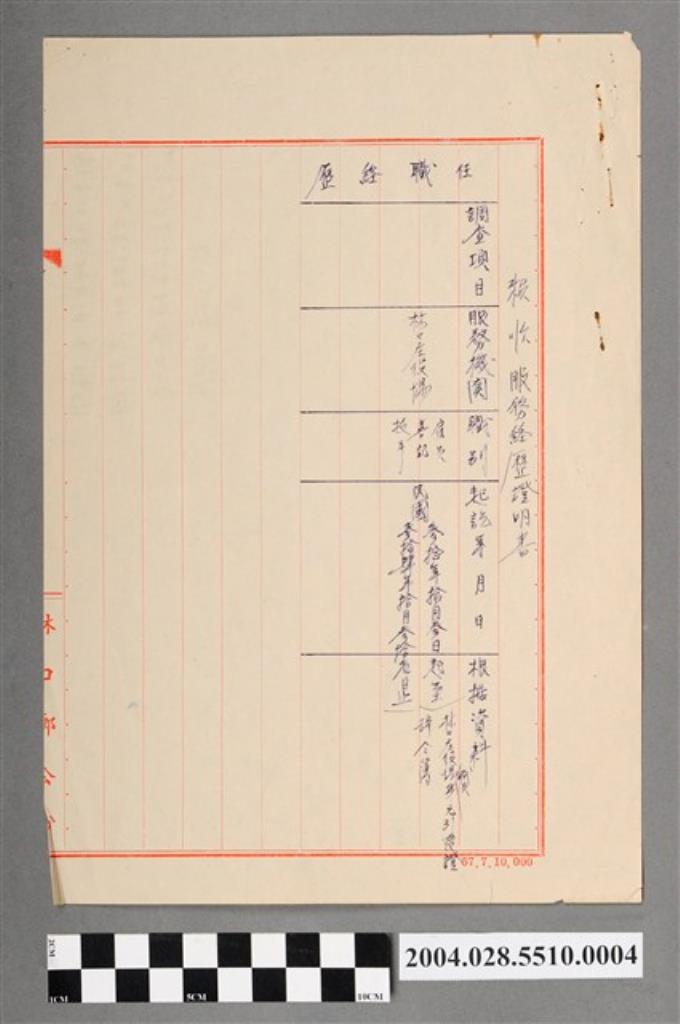 賴水服務經歷證明書
任職經歷
調查項目
服務機関
職別
起訖年月日
根據資料
林口庄役場
雇員
書記
技手
民國
參拾年拾月參日起至
參拾肆年拾月參拾
日止
林口庄役場
職員
辞令簿
林口鄉公
67.7.10,000
2CM
1CM
5CM
10CM
2004.028.5510.0004